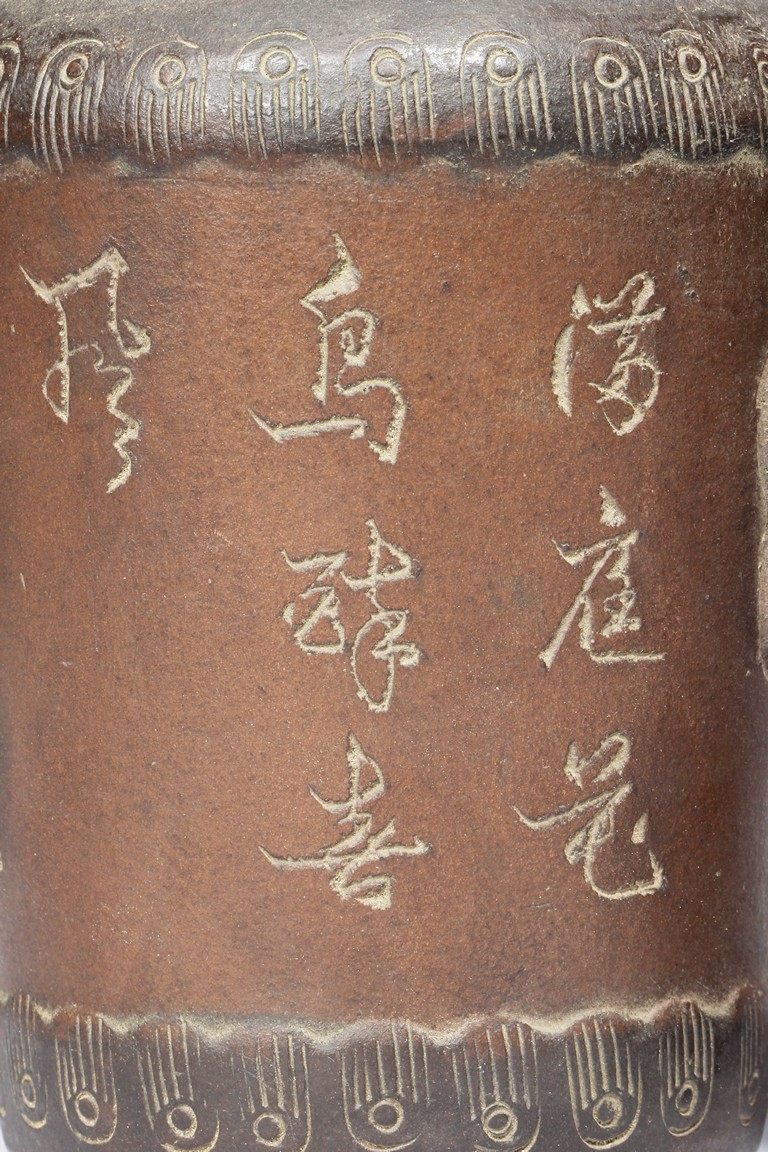 满庭花
鸟醉春
风